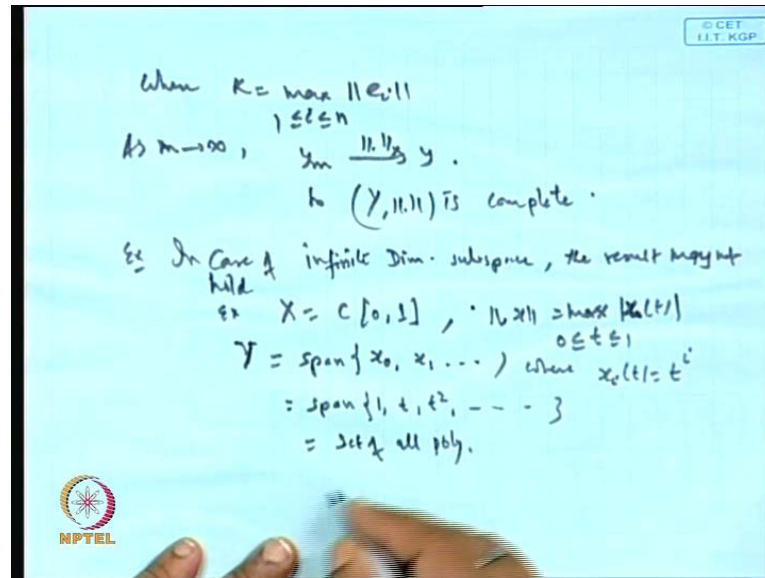 © CET
I.I.T. KGP
When K = max ||e_i||
1 ≤ i ≤ n
As m → ∞, y_m —||.||→ y.
to (Y, ||.||) is complete.
Ex In Case of infinite Dim. subspace, the result may not
hold
Ex X = C[0,1], ||x|| = max |x(t)|
0 ≤ t ≤ 1
Y = span{x_0, x_1, ...) where x_i(t) = t^i
= span{1, t, t^2, ---- }
= Set of all poly.
NPTEL